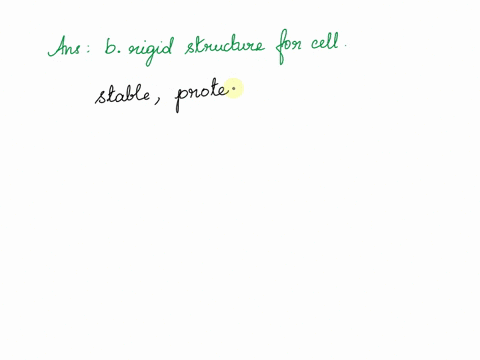 Ans: b. rigid structure for cell.
stable, prote